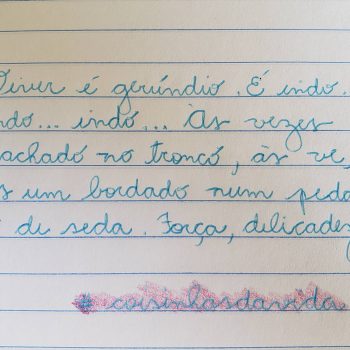 Viver é gerúndio. É indo.
indo... indo... Às vezes
machado no tronco, às ve,
s um bordado num peda
de seda. Força, delicadez
# coisinhasdavida